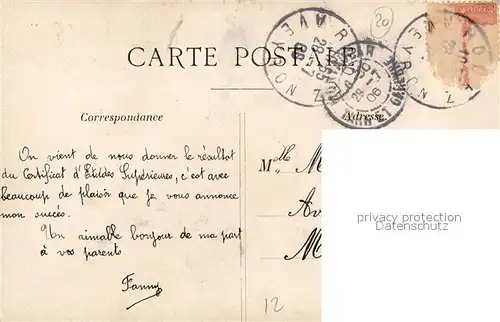 20
CARTE POSTALE
RODEZ AVEYRON
28-7
06
Correspondance
Adresse
On vient de nous donner le résultat
du Certificat d'Etudes Supérieures, c'est avec
beaucoup de plaisir que je vous annonce
mon succès.
Un aimable bonjour de ma part
à vos parents
Fanny
Melle M
Av
M
privacy protection
Datenschutz
12